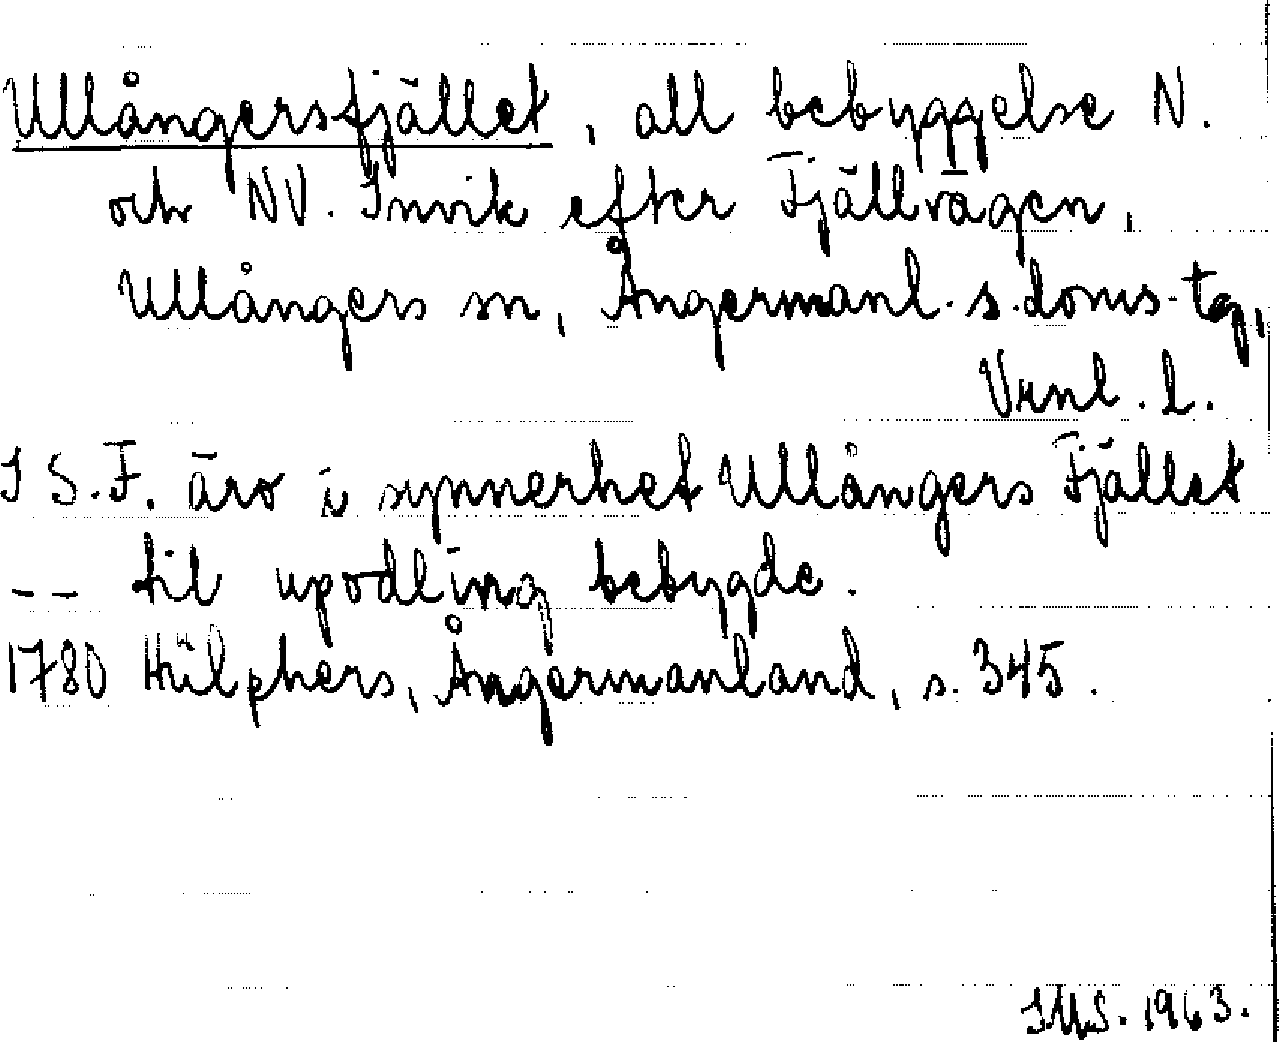 Ullångersfjället, all bebyggelse N.
och NV. Invik efter Fjällvägen,
Ullångers sn, Ångermanl. s. doms. tg,
Vrnl. l.
I S.F. äro i synnerhet Ullångers Fjället
-- til upodling bebygde.
1780 Hülphers, Ångermanland, s. 345.
IMS. 1963.